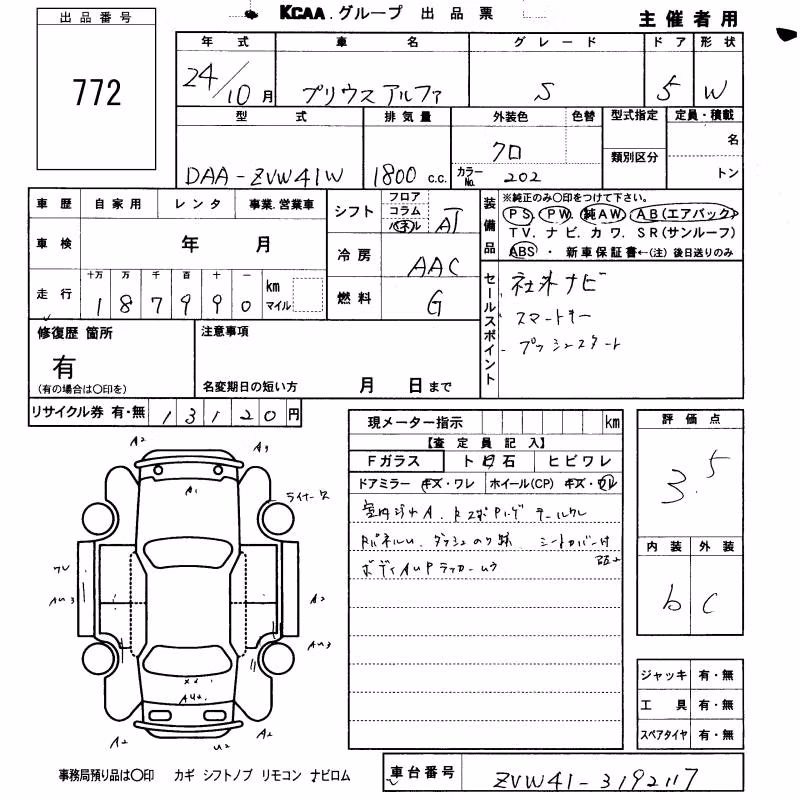 KCAA.グループ 出品票
主催者用
出品番号
772
年式 車名 グレード ドア 形状
24/10月 プリウスアルファ S 5 W
型式 排気量 外装色 色替 型式指定 定員・積載
DAA-ZVW41W 1800 c.c. クロ 名
カラーNo. 202 類別区分 トン
車歴 自家用 レンタ 事業.営業車
シフト フロア コラム パネル AT
装備品 ※純正のみ〇印をつけて下さい。
PS. PW. 純AW. AB(エアバック)
TV. ナビ. カワ. SR(サンルーフ)
ABS ・ 新車保証書←(注) 後日送りのみ
車検 年 月
冷房 AAC
走行 十万 万 千 百 十 一
1 8 7 9 9 0 km マイル
燃料 G
セールスポイント
社外ナビ
スマートキー
プッシュスタート
修復歴 箇所
有
(有の場合は〇印を)
注意事項
名変期日の短い方 月 日まで
リサイクル券 有・無 13120円
現メーター指示 km
【査定員記入】
Fガラス ト日石 ヒビワレ
ドアミラー キズ・ワレ ホイール(CP) キズ・ワレ
評価点
3.5
内装 外装
b C
A2 A3
A1
ワレ
AU3 A2
AU3
AU2
A2 U2 A2
ジャッキ 有・無
工具 有・無
スペアタイヤ 有・無
事務局預り品は〇印 カギ シフトノブ リモコン ナビロム
車台番号 ZVW41-3192117